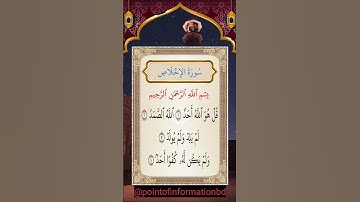 سُورَةُ الإِخْلَاصِ
بِسْمِ ٱللَّهِ ٱلرَّحْمَٰنِ ٱلرَّحِيمِ
قُلْ هُوَ ٱللَّهُ أَحَدٌ ۝١ ٱللَّهُ ٱلصَّمَدُ ۝٢
لَمْ يَلِدْ وَلَمْ يُولَدْ ۝٣
وَلَمْ يَكُن لَّهُۥ كُفُوًا أَحَدٌۢ ۝٤
@pointofinformationbd